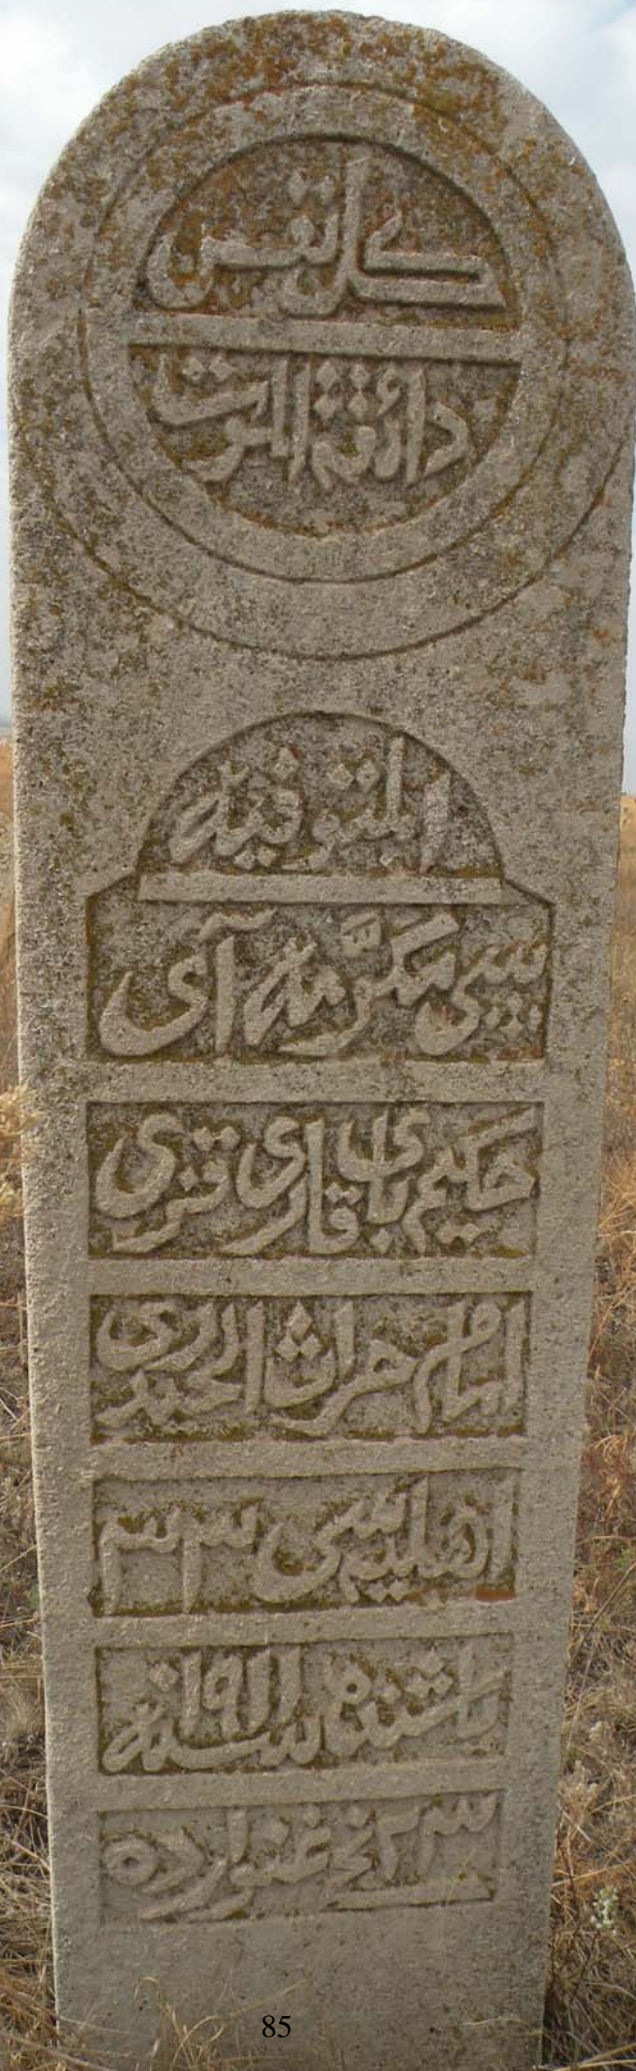 كل نفس
دائقة الموت
المتوفيه
بيبى مكرَّمه آى
حكيم باى قارى قزى
امام خراث الحيدرى
اهليه سى ٣٣
ياشنده سنه ١٩١١
٢٣نجى غنوارده
85